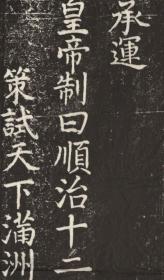 承運
皇帝制曰順治十二
策試天下滿洲